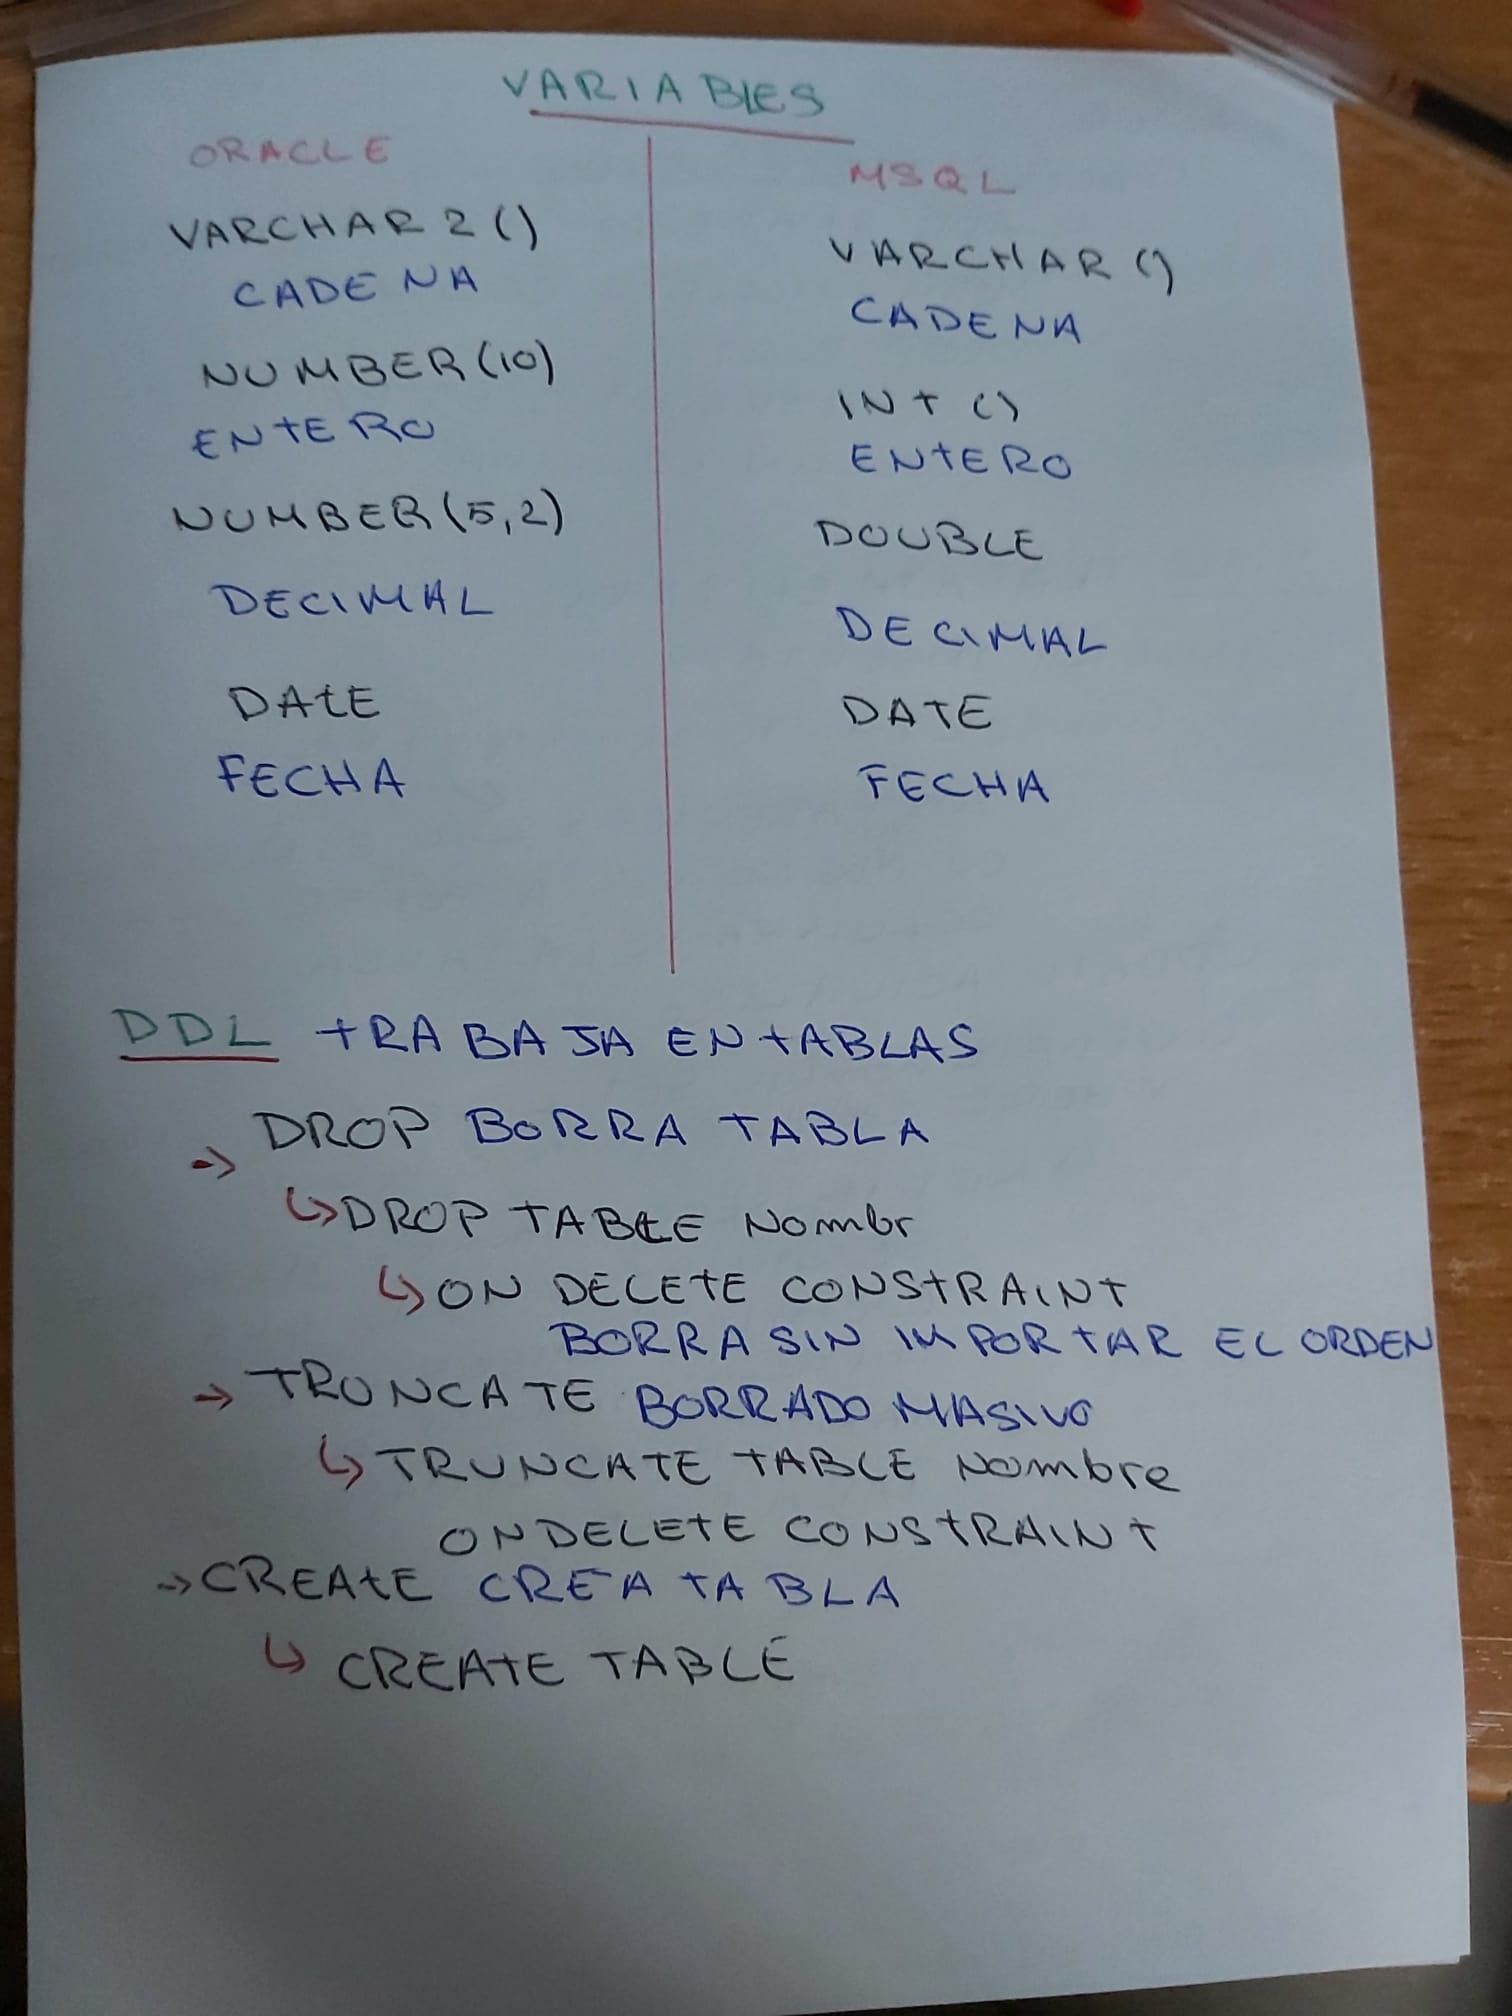 VARIABLES
ORACLE
VARCHAR2()
CADENA
NUMBER(10)
ENTERO
NUMBER(5,2)
DECIMAL
DATE
FECHA
MSQL
VARCHAR()
CADENA
INT()
ENTERO
DOUBLE
DECIMAL
DATE
FECHA
DDL TRABAJA EN TABLAS
-> DROP BORRA TABLA
↳ DROP TABLE Nombr
↳ ON DELETE CONSTRAINT
BORRA SIN IMPORTAR EL ORDEN
-> TRUNCATE BORRADO MASIVO
↳ TRUNCATE TABLE Nombre
ON DELETE CONSTRAINT
-> CREATE CREA TABLA
↳ CREATE TABLE